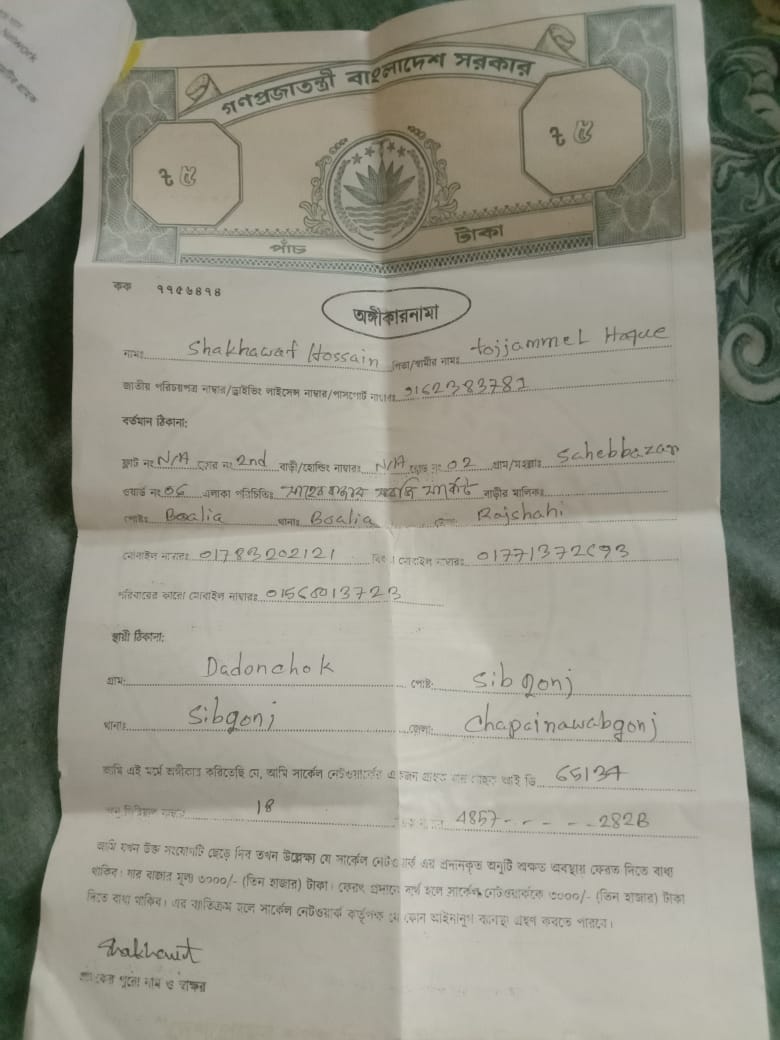 গণপ্রজাতন্ত্রী বাংলাদেশ সরকার
৳ ৫ ৳ ৫
পাঁচ টাকা
কক ৭৭৫৬৪৭৪
অঙ্গীকারনামা
নামঃ Shakhawat Hossain পিতা/স্বামীর নামঃ tojjammel Hoque
জাতীয় পরিচয়পত্র নাম্বার/ড্রাইভিং লাইসেন্স নাম্বার/পাসপোর্ট নাম্বারঃ 9162383781
বর্তমান ঠিকানা:
ফ্লাট নং N/A ফ্লোর নং 2nd বাড়ী/হোল্ডিং নাম্বারঃ N/A রোড নং 02 গ্রাম/মহল্লাঃ Sahebbazar
ওয়ার্ড নং 06 এলাকা পরিচিতিঃ সাহেব বাজার মার্কেট বাড়ীর মালিকঃ
পোষ্টঃ Boalia থানাঃ Boalia জেলাঃ Rajshahi
মোবাইল নাম্বারঃ 01783202121 মোবাইল নাম্বারঃ 01771372693
পরিবারের কারো মোবাইল নাম্বারঃ 01560013723
স্থায়ী ঠিকানা:
গ্রাম: Dadonchok পোষ্ট: Sibgonj
থানাঃ Sibgonj জেলা: Chapainawabgonj
আমি এই মর্মে অঙ্গীকার করিতেছি যে, আমি সার্কেল নেটওয়ার্কের একজন গ্রাহক যার গ্রাহক আই ডি 65134
অনু সিরিয়াল নাম্বার 18 4857- - - - -282B
আমি যখন উক্ত সংযোগটি ছেড়ে দিব তখন উল্লেক্ষ্য যে সার্কেল নেটওয়ার্ক এর প্রদানকৃত অনুটি অক্ষত অবস্থায় ফেরত দিতে বাধ্য
থাকিব। যার বাজার মূল্য ৩০০০/- (তিন হাজার) টাকা। ফেরৎ প্রদানে ব্যর্থ হলে সার্কেল নেটওয়ার্ককে ৩০০০/- (তিন হাজার) টাকা
দিতে বাধ্য থাকিব। এর ব্যতিক্রম হলে সার্কেল নেটওয়ার্ক কর্তৃপক্ষ যে কোন আইনানুগ ব্যবস্থা গ্রহণ করতে পারবে।
Shakhawat
গ্রাহকের পুরো নাম ও স্বাক্ষর